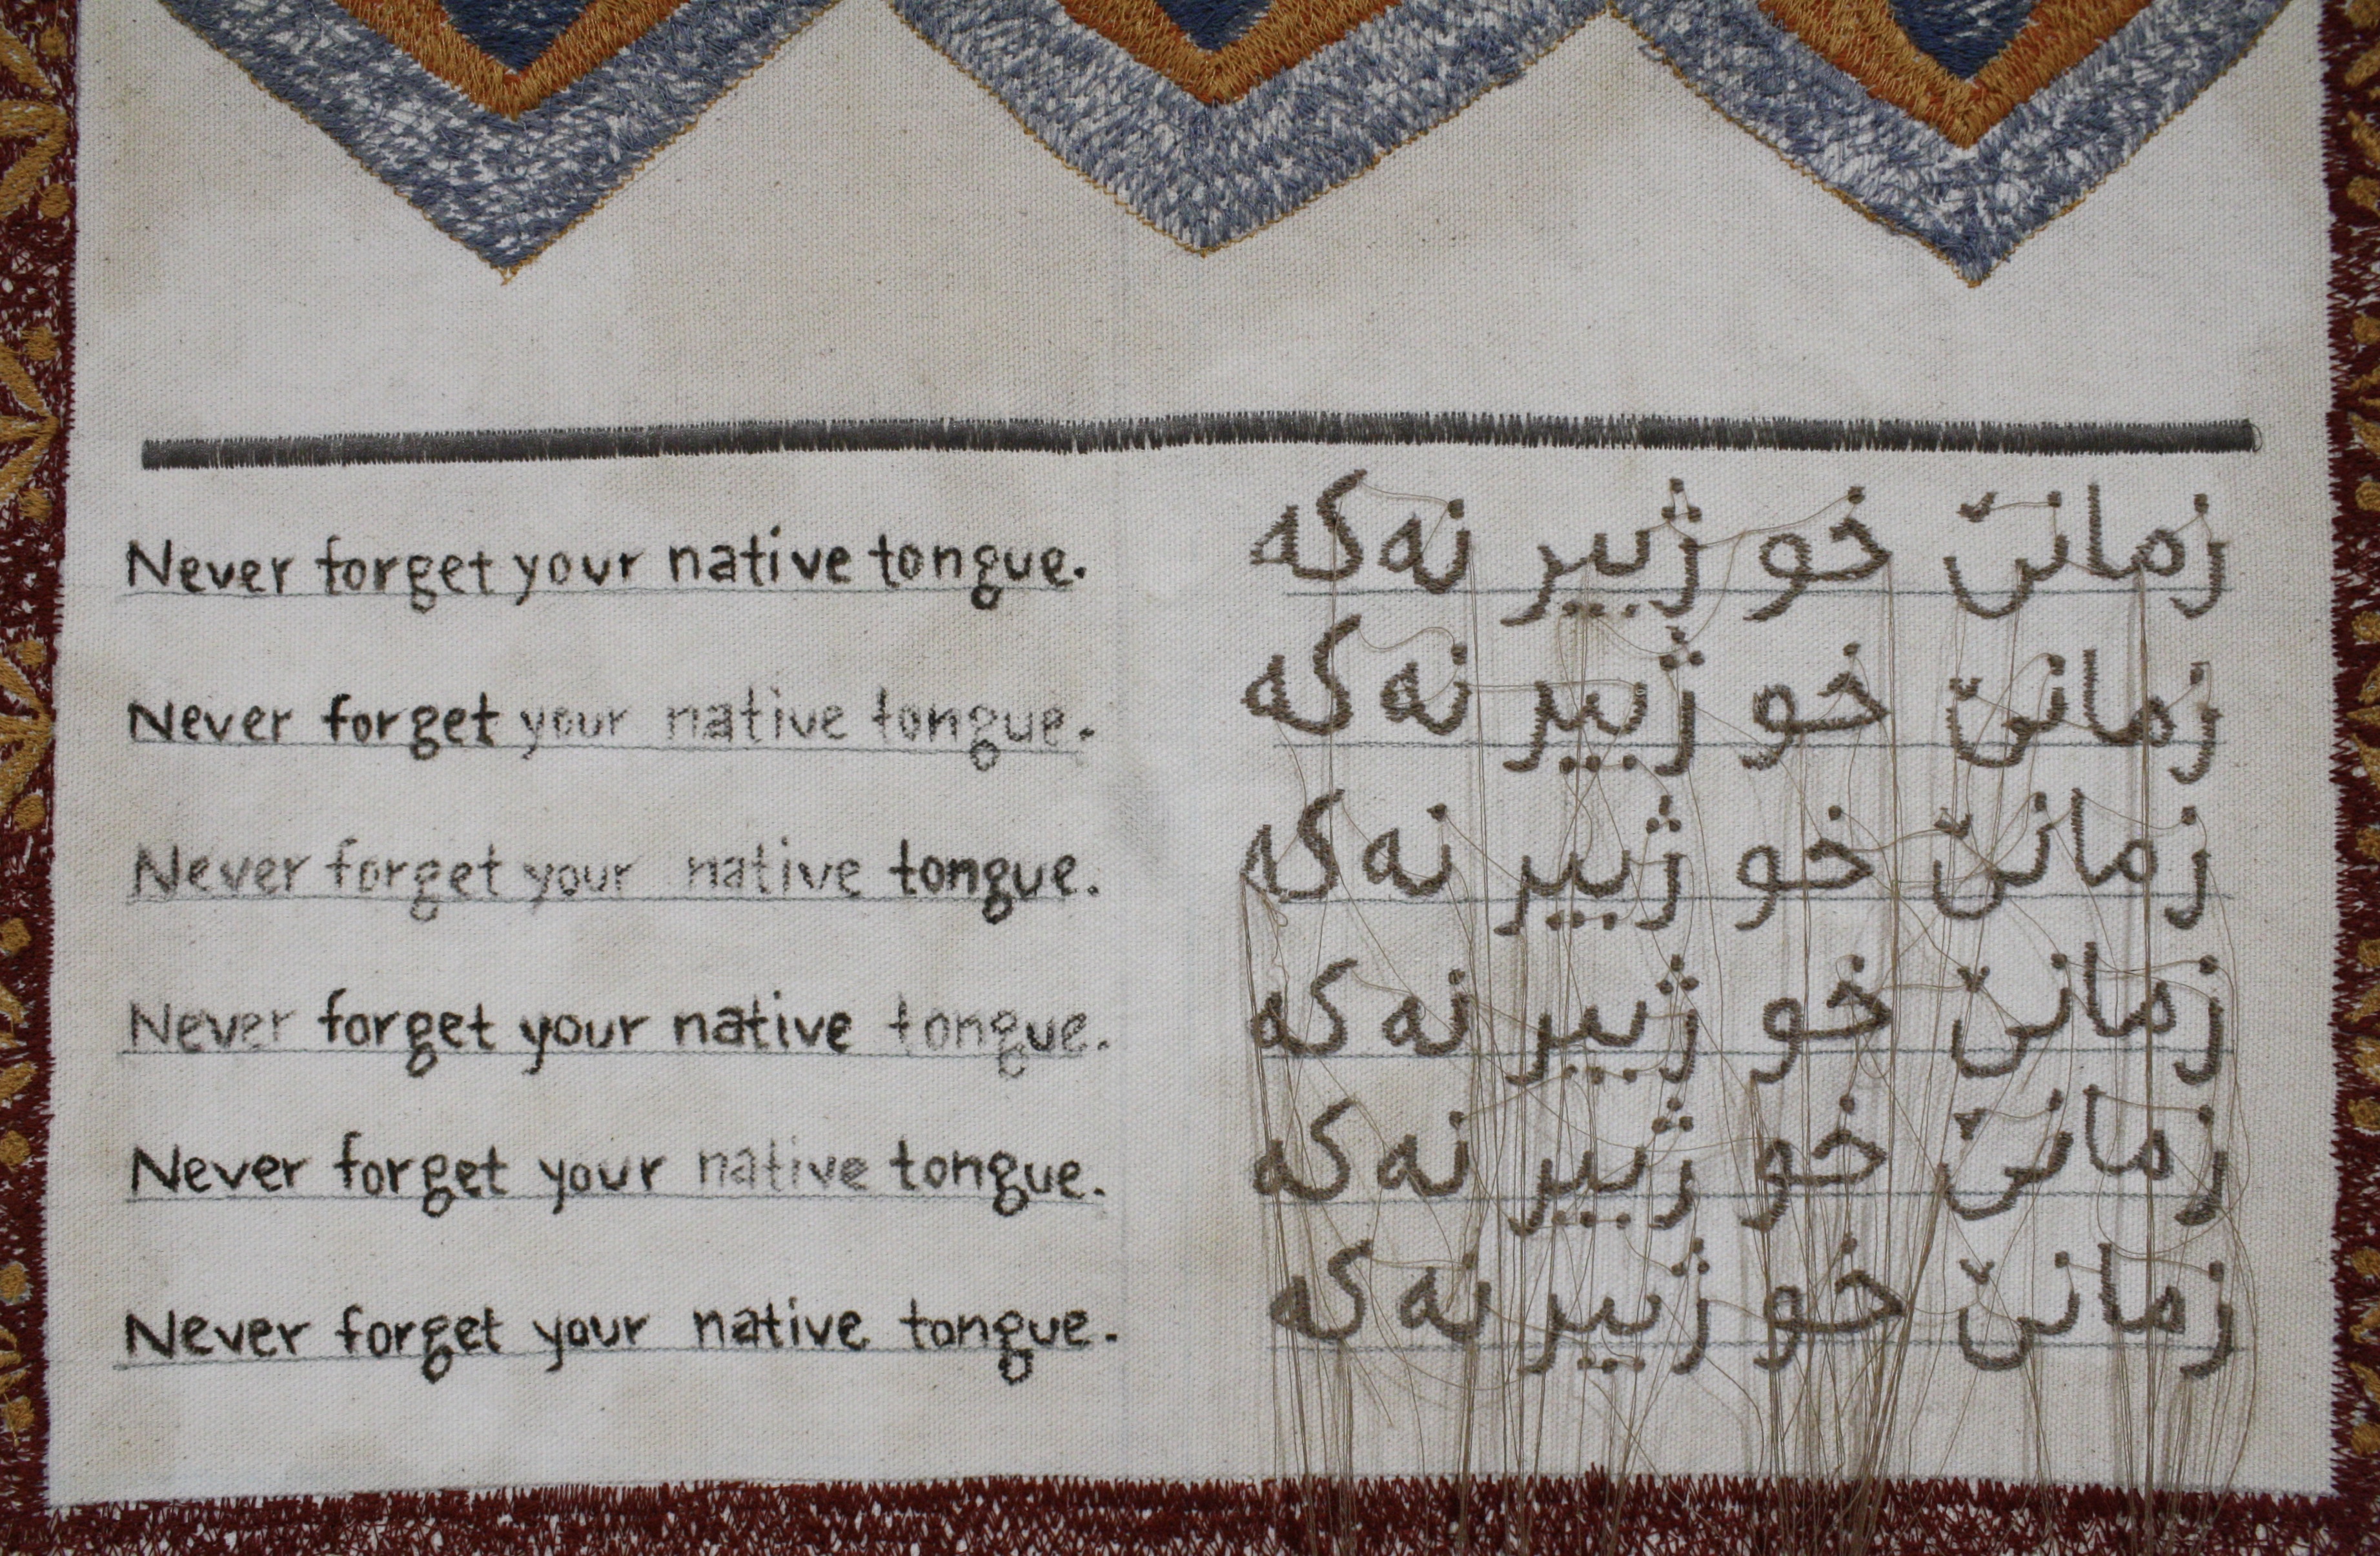 Never forget your native tongue.
Never forget your native tongue.
Never forget your native tongue.
Never forget your native tongue.
Never forget your native tongue.
Never forget your native tongue.
زمانێ خو ژبیر نەکە
زمانێ خو ژبیر نەکە
زمانێ خو ژبیر نەکە
زمانێ خو ژبیر نەکە
زمانێ خو ژبیر نەکە
زمانێ خو ژبیر نەکە